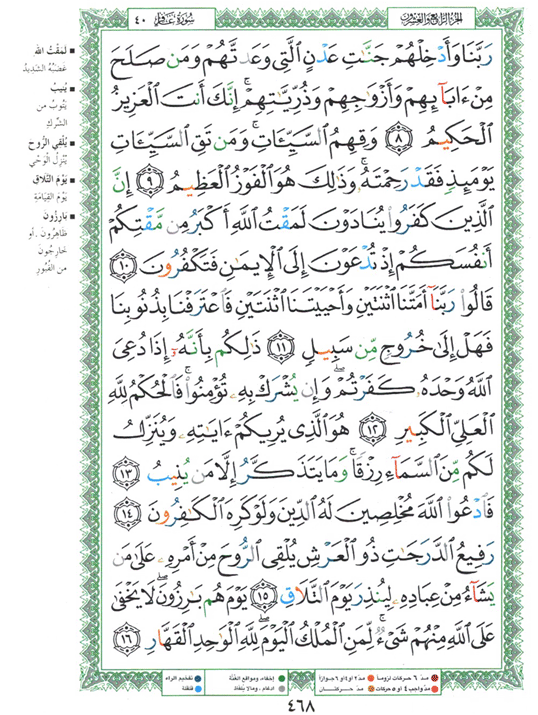 الجزء الرابع والعشرون
سُورَةُ غَافِر
٤٠
رَبَّنَا وَأَدْخِلْهُمْ جَنَّٰتِ عَدْنٍ ٱلَّتِى وَعَدتَّهُمْ وَمَن صَلَحَ
مِنْ ءَابَآئِهِمْ وَأَزْوَٰجِهِمْ وَذُرِّيَّٰتِهِمْ ۚ إِنَّكَ أَنتَ ٱلْعَزِيزُ
ٱلْحَكِيمُ ٨ وَقِهِمُ ٱلسَّيِّـَٔاتِ ۚ وَمَن تَقِ ٱلسَّيِّـَٔاتِ
يَوْمَئِذٍ فَقَدْ رَحِمْتَهُۥ ۚ وَذَٰلِكَ هُوَ ٱلْفَوْزُ ٱلْعَظِيمُ ٩ إِنَّ
ٱلَّذِينَ كَفَرُوا۟ يُنَادَوْنَ لَمَقْتُ ٱللَّهِ أَكْبَرُ مِن مَّقْتِكُمْ
أَنفُسَكُمْ إِذْ تُدْعَوْنَ إِلَى ٱلْإِيمَٰنِ فَتَكْفُرُونَ ١٠
قَالُوا۟ رَبَّنَآ أَمَتَّنَا ٱثْنَتَيْنِ وَأَحْيَيْتَنَا ٱثْنَتَيْنِ فَٱعْتَرَفْنَا بِذُنُوبِنَا
فَهَلْ إِلَىٰ خُرُوجٍ مِّن سَبِيلٍ ١١ ذَٰلِكُم بِأَنَّهُۥٓ إِذَا دُعِىَ
ٱللَّهُ وَحْدَهُۥ كَفَرْتُمْ ۖ وَإِن يُشْرَكْ بِهِۦ تُؤْمِنُوا۟ ۚ فَٱلْحُكْمُ لِلَّهِ
ٱلْعَلِىِّ ٱلْكَبِيرِ ١٢ هُوَ ٱلَّذِى يُرِيكُمْ ءَايَٰتِهِۦ وَيُنَزِّلُ
لَكُم مِّنَ ٱلسَّمَآءِ رِزْقًا ۚ وَمَا يَتَذَكَّرُ إِلَّا مَن يُنِيبُ ١٣
فَٱدْعُوا۟ ٱللَّهَ مُخْلِصِينَ لَهُ ٱلدِّينَ وَلَوْ كَرِهَ ٱلْكَٰفِرُونَ ١٤
رَفِيعُ ٱلدَّرَجَٰتِ ذُو ٱلْعَرْشِ يُلْقِى ٱلرُّوحَ مِنْ أَمْرِهِۦ عَلَىٰ مَن
يَشَآءُ مِنْ عِبَادِهِۦ لِيُنذِرَ يَوْمَ ٱلتَّلَاقِ ١٥ يَوْمَ هُم بَٰرِزُونَ ۖ لَا يَخْفَىٰ
عَلَى ٱللَّهِ مِنْهُمْ شَىْءٌ ۚ لِّمَنِ ٱلْمُلْكُ ٱلْيَوْمَ ۖ لِلَّهِ ٱلْوَٰحِدِ ٱلْقَهَّارِ ١٦
■ لَمَقْتُ الله
غَضَبُهُ الشديدُ
■ يُنِيبُ
يَتُوبُ من
الشّركِ
■ يُلْقِي الرُّوحَ
يُنْزِلُ الْوَحْيَ
■ يَوْمَ التَّلاقِ
يَوْمَ القِيَامَةِ
■ بَارِزُونَ
ظاهِرُون . أو
خارِجُون
من القُبُورِ
مدّ ٦ حركات لزوماً مدّ ٢ أو ٤ أو ٦ جوازاً
مدّ واجب ٤ أو ٥ حركات مدّ حركتان
إخفاء، ومواقع الغُنَّة
إدغام، وما لا يُلفظ
تفخيم الراء
قلقلة
٤٦٨